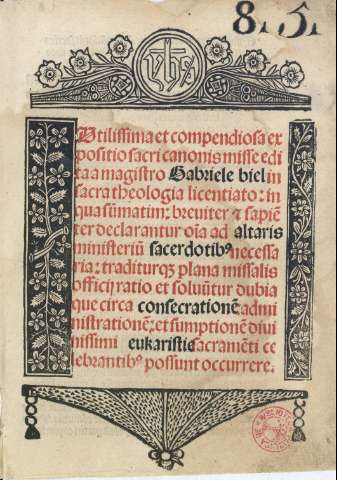 8.151
yhs
Utilissima et compendiosa ex
positio sacri canonis misse edi
ta a magistro Gabriele biel in
sacra theologia licentiato: in
qua sūmatim: breuiter ⁊ sapiē
ter declarantur oīa ad altaris
ministeriū sacerdotibꝰ necessa
ria: traditurqꝫ plana missalis
officij ratio et soluūtur dubia
que circa consecrationē admi
nistrationē: et sumptionē diui
nissimi eukaristie sacramēti ce
lebrantibꝰ possunt occurrere.